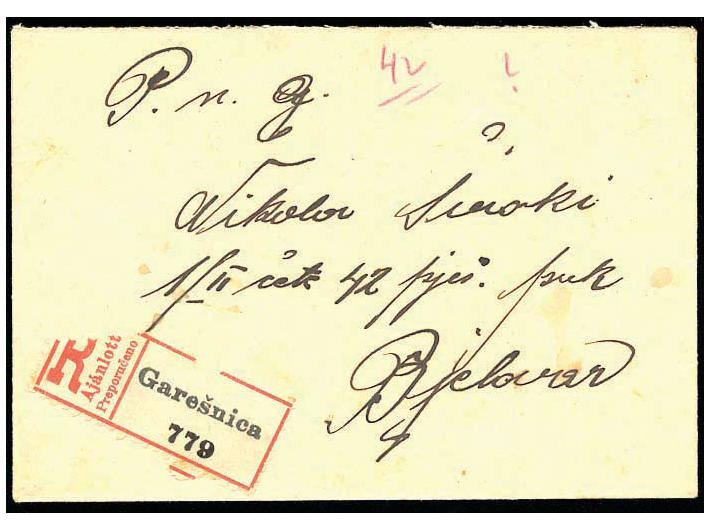 42 !
P. n. g.
Nikola Široki
1/II čet. 42 pješ. puk
Bjelovar
R
Ajánlott
Preporučeno
Garešnica
779